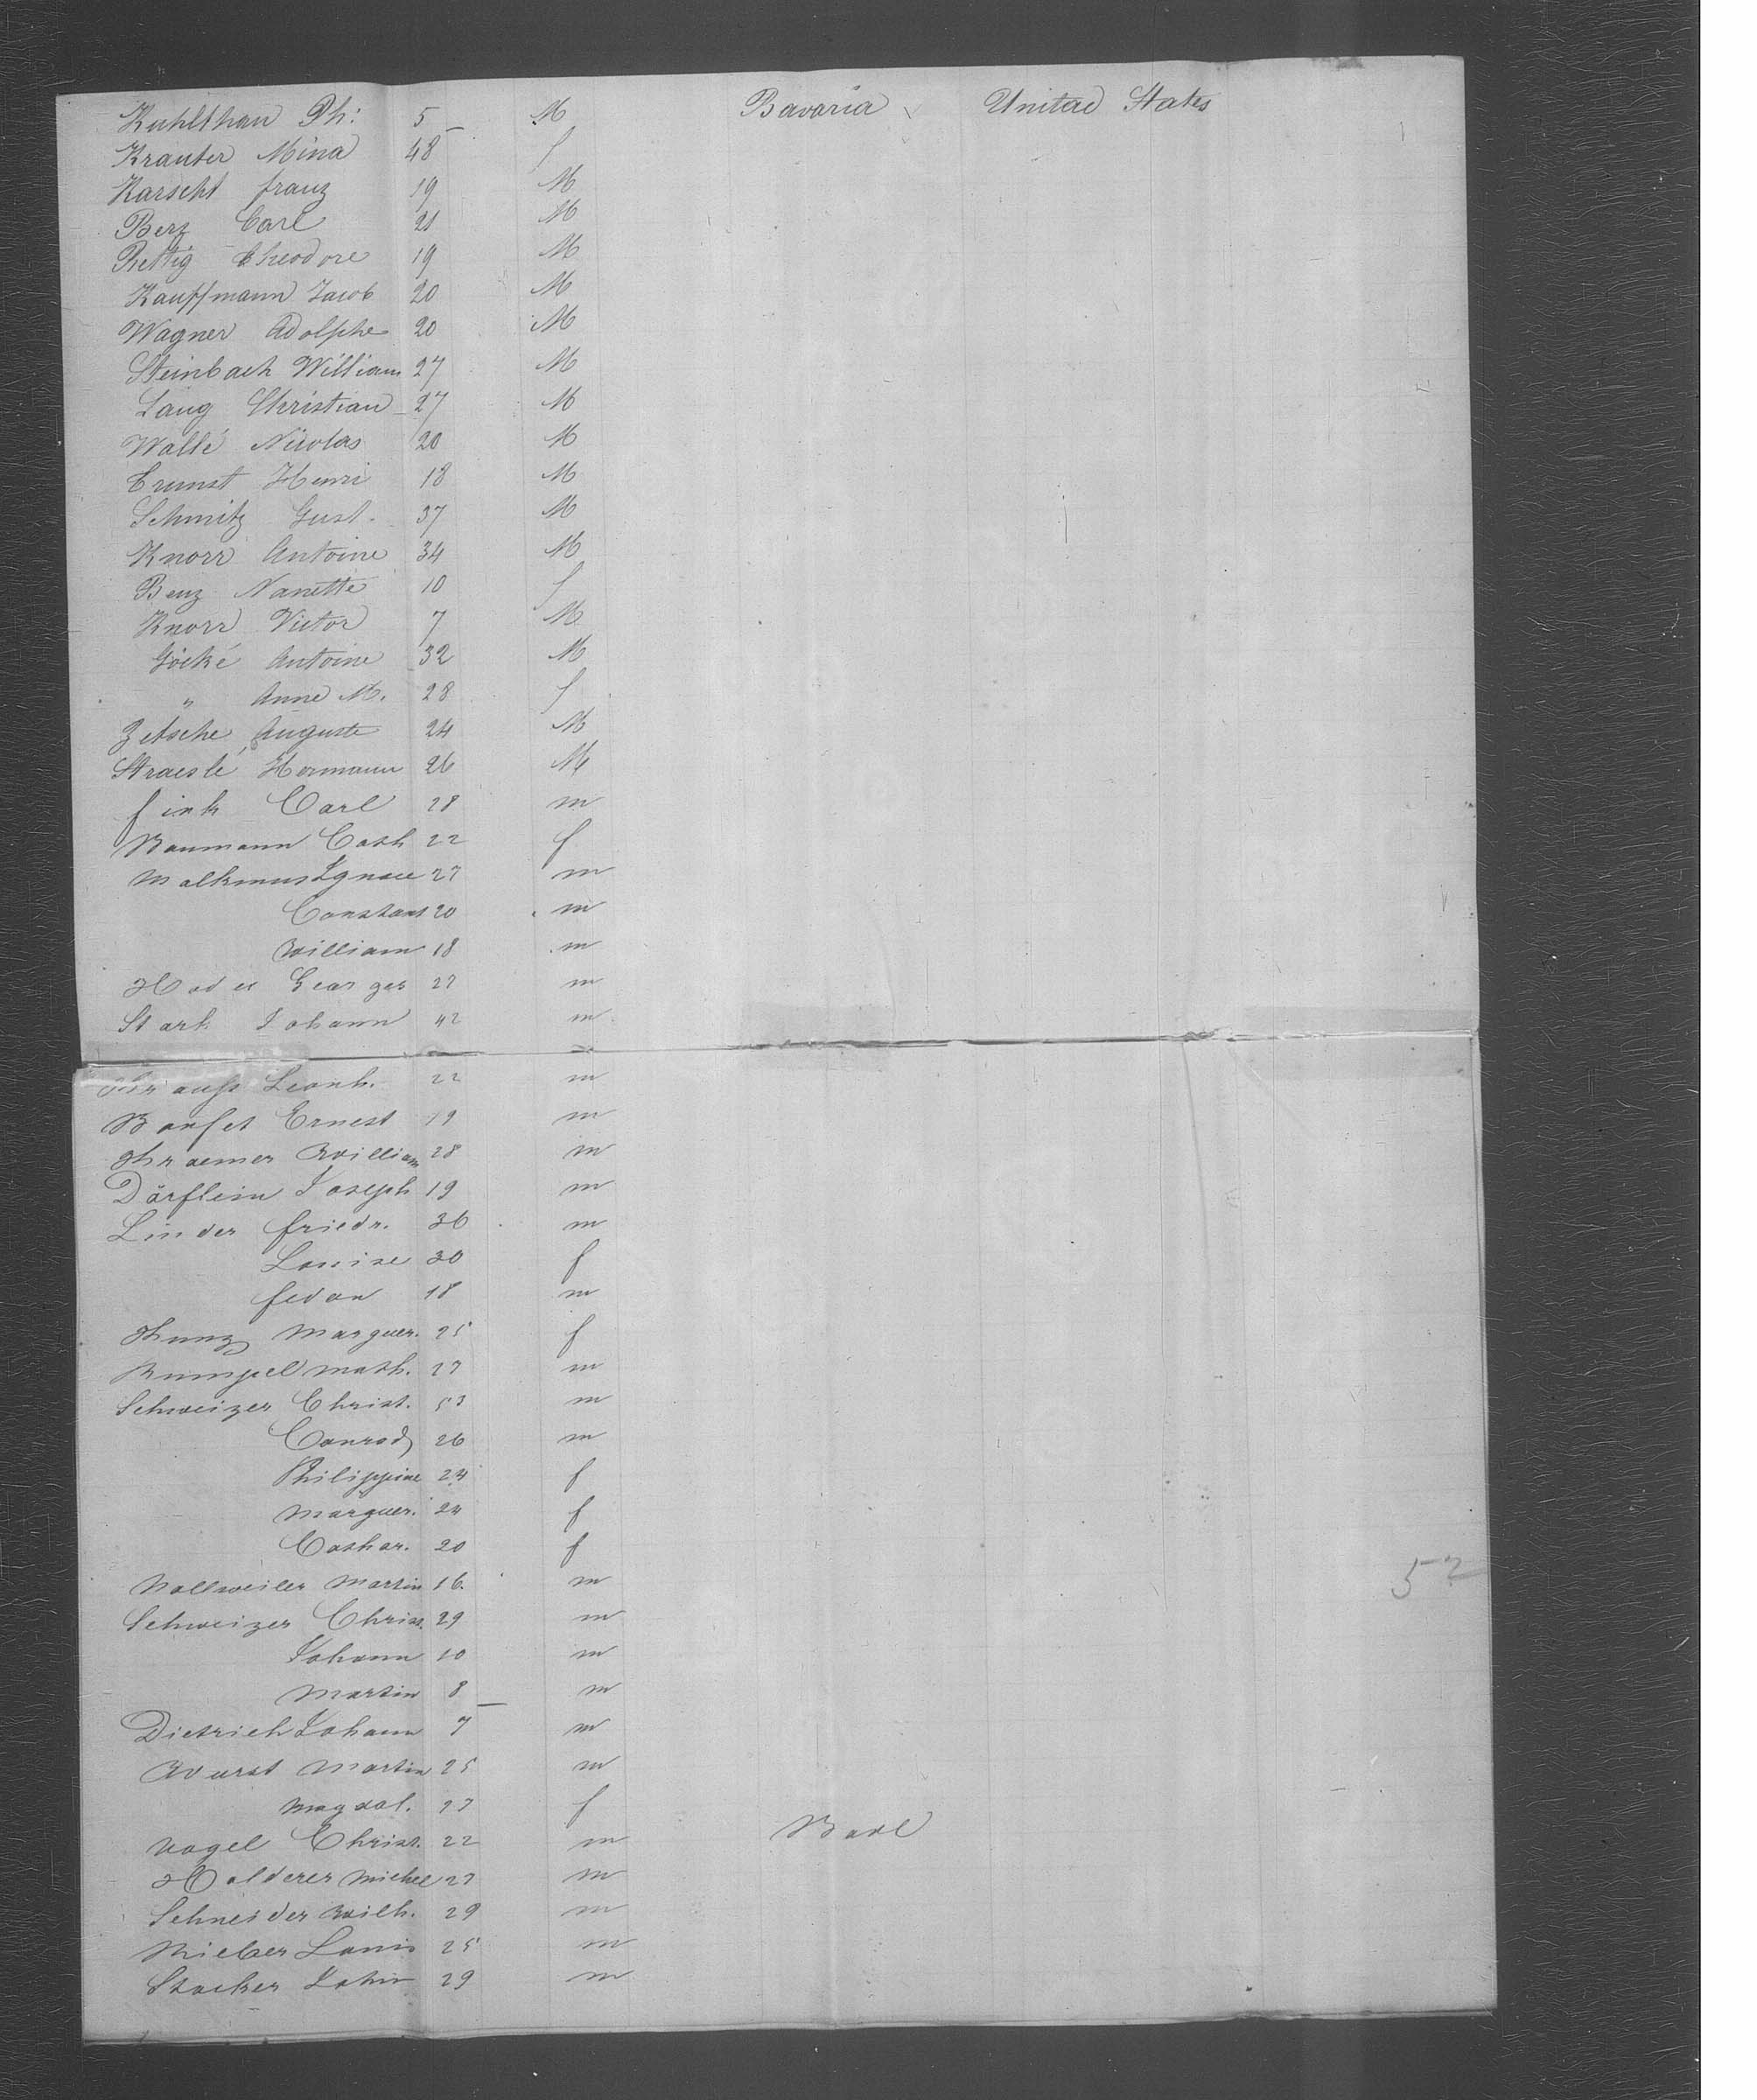 Kuhlthau Ph: 5 M Bavaria United States
Krauter Mina 48 f
Karscht franz 19 M
Berz Carl 21 M
Rettig theodore 19 M
Kauffmann Jacob 20 M
Wagner Adolphe 20 M
Steinbach William 27 M
Lang Christian 27 M
Wallé Nicolas 20 M
Ernnst Henri 18 M
Schmitz Gust. 37 M
Knorr Antoine 34 M
Benz Nanette 10 f
Knorr Victor 7 M
Göcké Antoine 32 M
" Anne M. 28 f
Zetsche Auguste 24 M
Straeslé Hermann 26 M
fink Carl 28 m
Baumann Cath 22 f
Malkmus Ignace 27 m
Constant 20 m
William 18 m
Georges 27 m
Stark Johann 42 m
Leonh. 22 m
Ernest 19 m
Kraemer William 28 m
Dörflein Joseph 19 m
Linder friedr. 36 m
Louise 30 f
18 m
Kunz Marguer. 25 f
Rumpel Math. 27 m
Schweizer Christ. 53 m
Conrad 26 m
Philippine 24 f
Marguer. 24 f
Cathar. 20 f
Nollweiler Martin 16. m 52
Schweizer Christ. 29 m
Johann 10 m
Martin 8 m
Dietrich Johann 7 m
Wurst Martin 25 m
Magdal. 27 f
Vogel Christ. 22 m
Holderer Michel 27 m
Schneider Wilh. 29 m
Louis 25 m
Stocker John 29 m